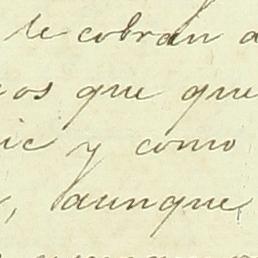 le cobran a
os que que
ic y como
, aunque